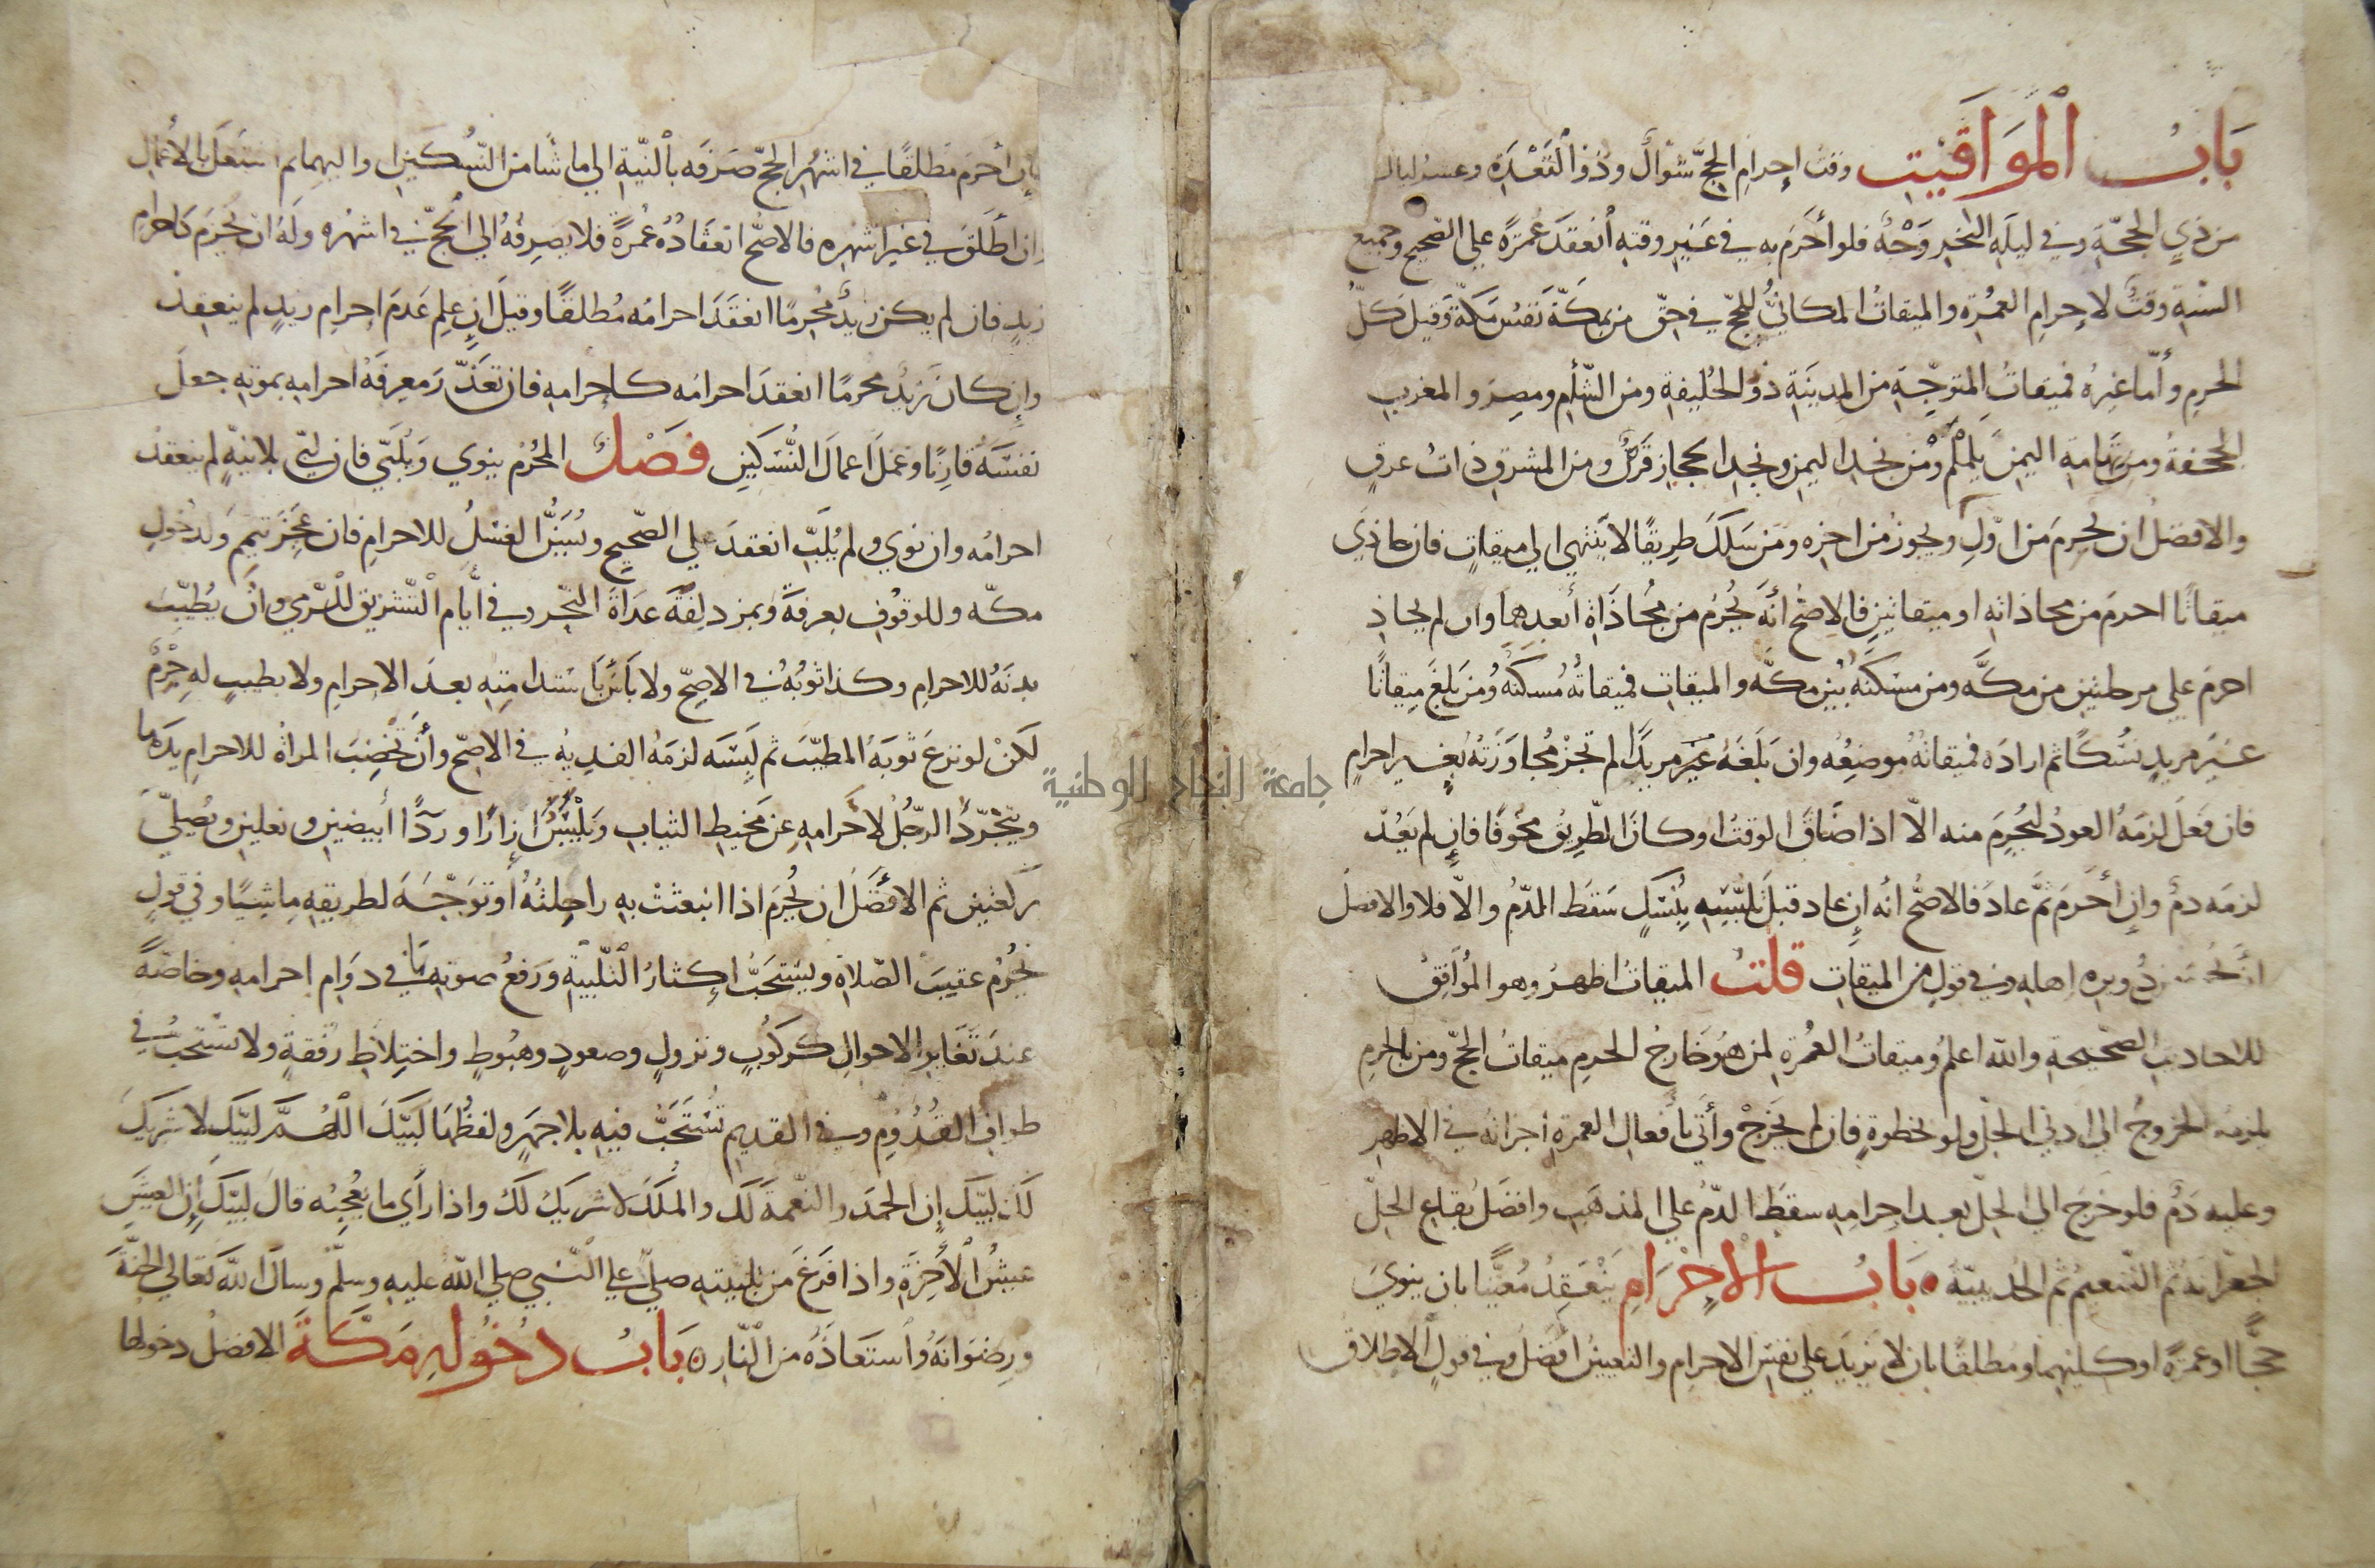 بَابُ الْمَوَاقَيْتِ وقت إحرام الحجّ شوّالٌ وذوا القَعْدَةِ وعشر ليال
من ذي الحجّةِ وفي ليلةِ النّحرِ وَجْهٌ فلو أحْرَمَ به في غَيْرِ وقتِه اُنعقدَ عُمْرَةً علي الصّحيح وجميع
السّنةِ وقتٌ لإحرامِ العُمْرةِ والميقاتُ المكانيُّ للحجّ في حقّ من بمكّةَ نَفسُ مَكّةَ وَقيلَ كلُّ
الحرمِ وأمّا غيرُه فميقاتُ المتوجّهِ من المدينَةِ ذوُ الحُليفةِ ومن الشّأمِ ومصرَ والمغربِ
الجحفةُ ومن تِهَامةِ اليمنِ يَلَمْلَمُ ومن نجدِ اليمنِ ونجدِ الحجازِ قَرْنٌ ومن المشرقِ ذاتُ عرقٍ
والافضلُ ان يُحرِمَ من اوّلِ ويجوزُ من اخرِه ومَن سَلَكَ طريقًا لا يَنتهي الي ميقاتٍ فان حاذي
ميقاتًا احرمَ من محاذاتِه او ميقاتينِ فالاصحُّ أنّهُ يُحْرمُ من مُحَاذَاةِ أبعدِهما وان لم يحاذِ
احرمَ علي مرحلتينِ من مكّةَ ومن مسكَنُهُ بَيْنَ مكّةَ والميقاتِ فميقاتُهُ مُسكنُهُ ومن بَلغَ ميقاتًا
غيرَ مريدٍ نُسُكًا ثم ارادَه فميقاتُهُ موضِعُه وان بَلَغَهُ غَيْرَ مريدًا لم تجزْ مُجاوَزَتُهُ بُغيرِ احرامٍ
فان فَعَلَ لزمَهُ العودُ ليُحْرِمَ منه الاّ اذا ضَاقَ الوقتُ او كانَ الطّرِيقُ مخُوفًا فإن لم يَعُدْ
لزمَه دمٌ وإن أحْرَمَ ثمّ عادَ فالاصحُّ أنه إن عاد قبلَ تلبُّسِه بِنُسُكٍ سَقَطَ الدّمُ والاّ فلا والافضلُ
ان يُحرم من دُويرِه اهله وفي قولٍ من الميقاتِ قلتُ الميقاتُ اظهرُ وهو المُوَافِقُ
للاحاديثِ الصّحيحةِ والله اعلمُ وميقاتُ العُمْرَةِ لمن هُوَ خَارِجُ الحرمِ ميقاتُ الحجّ ومن بالحرمِ
يلزمهُ الخروجُ الي ادني الحِلّ ولو بخطوةٍ فان لم يَخرجْ وأتَي بأفعالِ العمرةِ أجزاتْه في الاظهر
وعليه دَمٌ فلو خَرَجَ الي الحِلّ بعد احرامِه سقَطَ الدّمُ علي المذهَبِ وافضَلُ بقاعِ الحلّ
الجِعْرانَةُ ثمّ التّنعيمُ ثم الحُديبيّةُ بَابُ الْإحْرَامِ يَنْعَقِدُ مُعَيّنًا بان ينويَ
حجًّا او عُمْرَةً او كليهما ومُطلقًا بان لا يَزيدَ علي نَفسِ الاحرامِ والتّعيينُ افضلُ وفي قولٍ الاطلاقُ
فإن أحْرَمَ مُطلقًا في اشهُرِ الحجّ صَرَفَه بالنّيةِ الي ما شَا من النُّسُكينِ او اليهما ثم اشتغلَ بالاعمالِ
وان أطلَقَ في غير اشهُرِه فالاصحُّ انعقَادُهُ عُمْرَةً فلا يصرِفُهُ الي الحجّ في اشهُره ولَهُ ان يُحْرِمَ كاحرامِ
زيدٍ فان لم يكن زيدٌ مُحْرِمًا انعَقَدَ احرامُه مُطلقًا وقيلَ إن علِمَ عَدَمَ احرامِ زيدٍ لم ينعقدْ
وإن كانَ زيْدٌ محرمًا انعقدَ احرامُه كاحرامِه فان تعَذّرَ معرفةُ احرامِه بموتِه جعلَ
نفسَهُ قارِنًا وعَمِلَ اعمالَ النُّسُكَيْنِ فَصْلٌ المُحْرِمُ ينوي وَيُلَبّي فان لبّي بلا نيّةٍ لم ينعقدْ
احرامُه وان نوي ولم يُلَبِّ انعقدَ علي الصّحيحِ ويُسَنُّ الغسْلُ للاحرامِ فان عَجزَ تيمم ولدُخولِ
مكّه وللوقوفِ بعرفةَ وبمزدلِفةَ غداةَ النّحر وفي أيّامِ التّشريقِ للرّمي وانْ يُطيّبَ
بدنَهُ للاحرامِ وكذا ثوبُهُ في الاصحّ ولا باسَ باستدامتِه بعدَ الاحرامِ ولا بطيبٍ له جِرْمٌ
لكنْ لو نزعَ ثوبَهُ المطيّبَ ثم لَبِسَه لزمَهُ الفديةُ في الاصحّ وأنْ تُخْضِبَ المراةُ للاحرامِ يدَهَا
ويتجرّدُ الرّجُلُ لاحْرامِهِ عن مَخيطِ الثيابِ ويَلْبَسُ إزارًا وردآءً أبيضينِ ونعلينِ ويُصلّيَ
ركعتينِ ثم الافضَلُ ان يُحْرمَ اذا انبعثتْ بهِ راحِلتُهُ أو تَوَجّهَ لطريقِه ماشِيًا وفي قولٍ
يُحْرِمُ عقيبَ الصّلاةِ ويستحَبُّ إكثارُ التلْبيةِ ورَفعُ صوتِه بها في دوامِ إحرامِه وخاصّةً
عندَ تَغَايُرِ الاحوالِ كركُوبٍ ونزولٍ وصعودٍ وهبُوطٍ واختِلاطِ رُفقةٍ ولا تستحبُّ في
طوافِ القُدُومِ وفي القديمِ تُسْتَحَبُّ فيه بلا جَهرٍ ولفظُهَا لَبّيْكَ اللّهُمَّ لبّيْكَ لا شريكَ
لكَ لبّيْكَ إنّ الحمدَ والنّعمةَ لكَ والمُلكَ لا شريكَ لكَ واذا رأي ما يُعْجِبُه قالَ لبّيْكَ إنّ العيشَ
عيشُ الأخِرَةِ واذا فَرَغَ من تلبيتِه صلّي علي النّبيِ صلي اللهُ عليهِ وسلّم وسالَ اللهَ تعَالي الجنّةَ
ورِضوَانَهُ وَاستَعَاذَهُ من النّارِ بَابُ دخُولِ مَكَّةَ الافضلُ دخولها
جامعة النجاح الوطنية